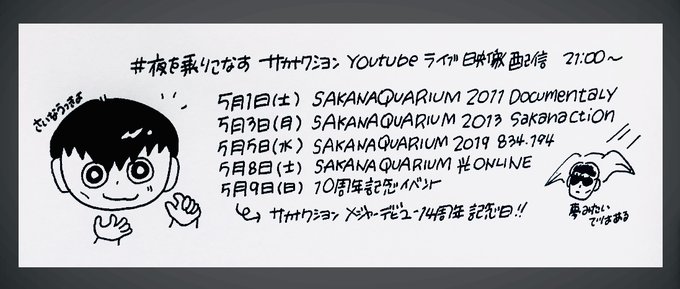 #夜を乗りこなす サカナクション Youtube ライブ映像配信 21:00〜
5月1日(土) SAKANAQUARIUM 2011 Documentaly
5月3日(月) SAKANAQUARIUM 2013 Sakanaction
5月5日(水) SAKANAQUARIUM 2019 834.194
5月8日(土) SAKANAQUARIUM 光 ONLINE
5月9日(日) 10周年記念イベント
サカナクション メジャーデビュー14周年記念日!!
夢みたい
ではある